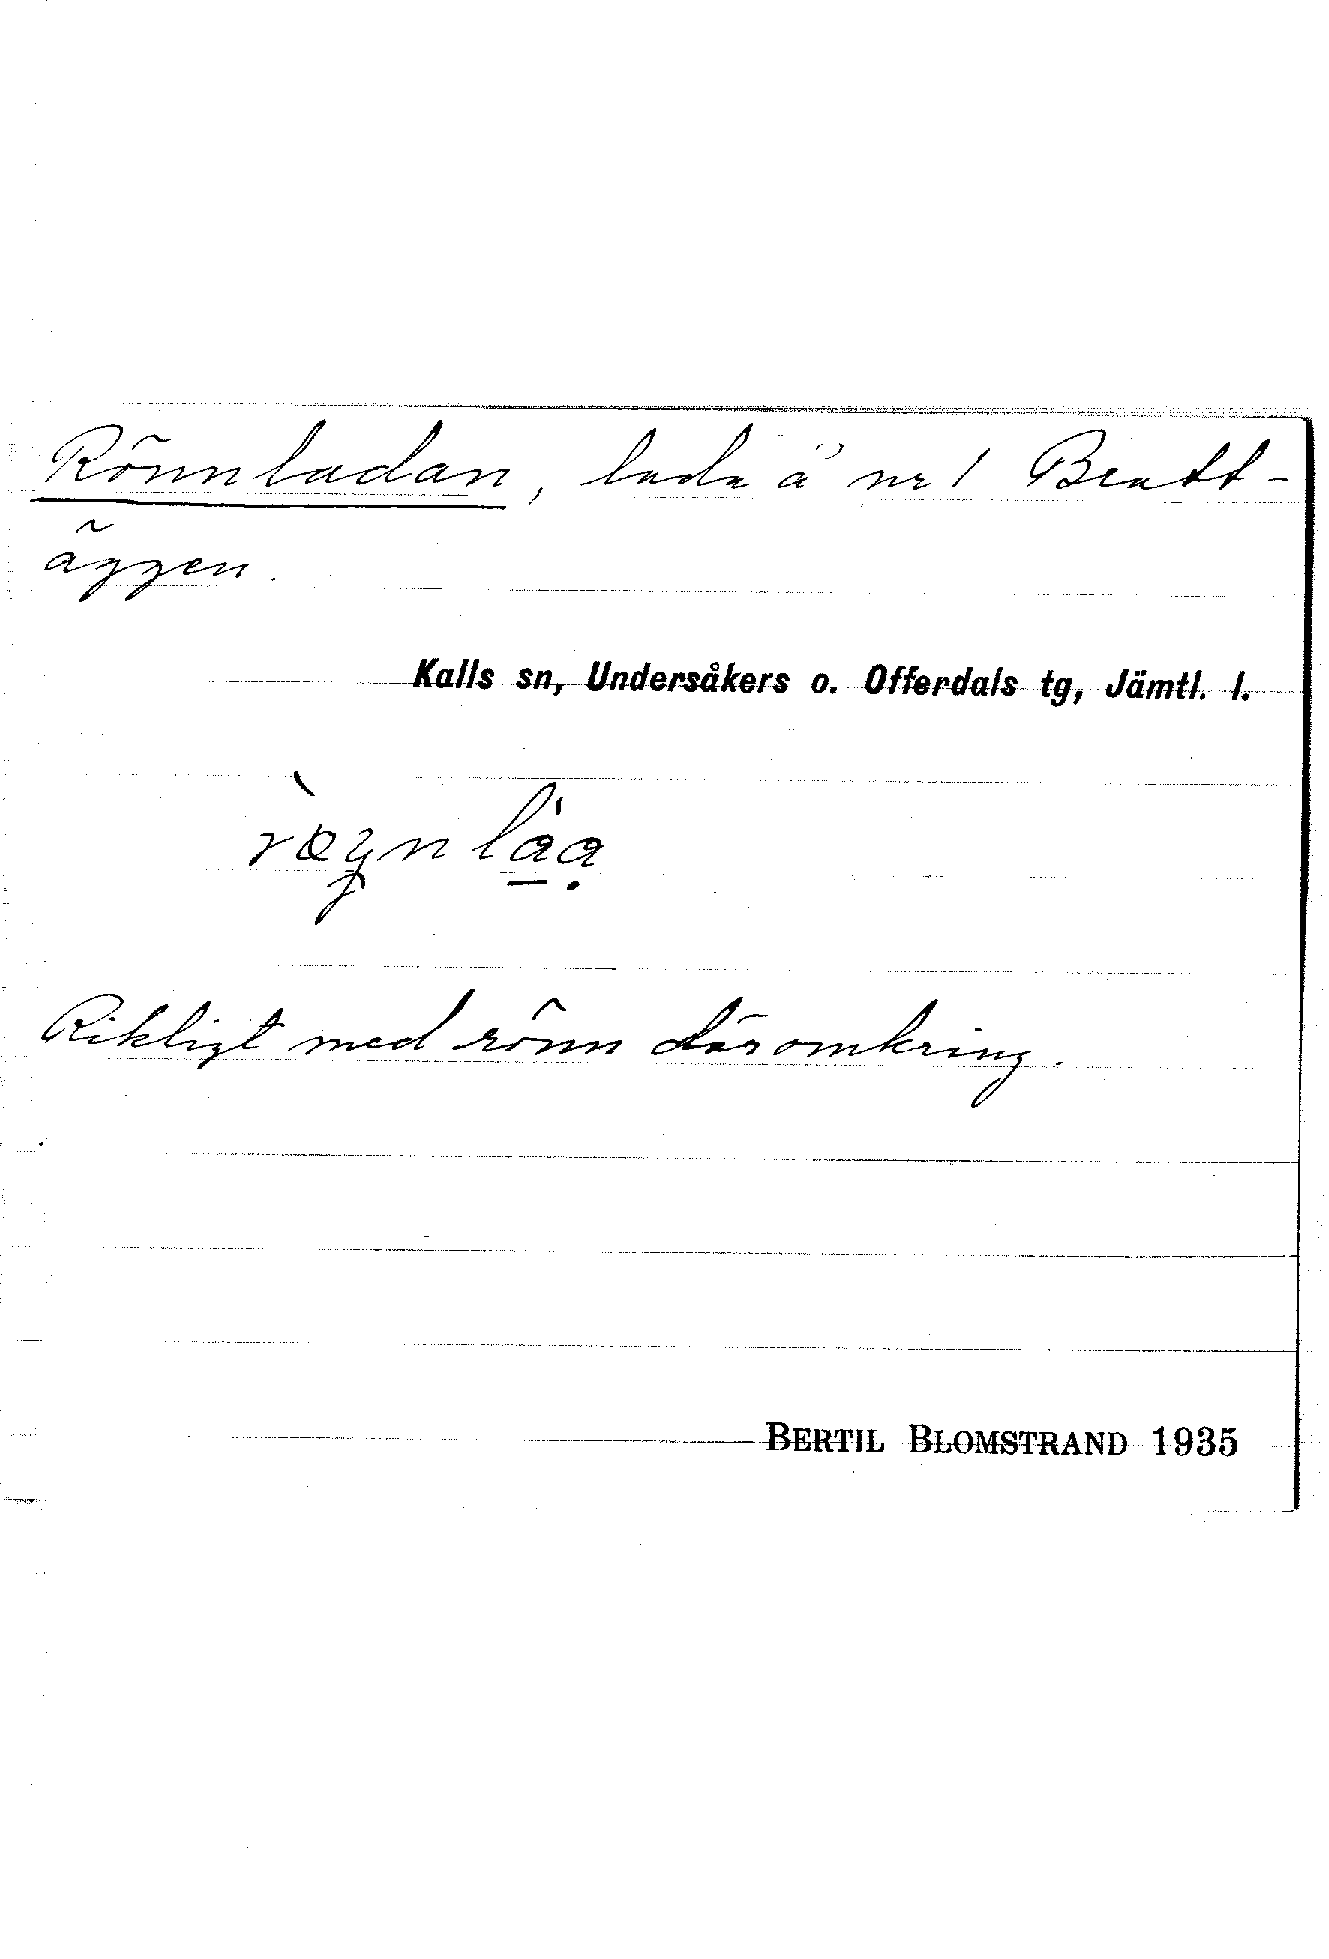 Rönnladan, lada å nr 1 Bratt-
äggen.
Kalls sn, Undersåkers o. Offerdals tg, Jämtl. l.
Rikligt med rönn däromkring.
BERTIL BLOMSTRAND 1935